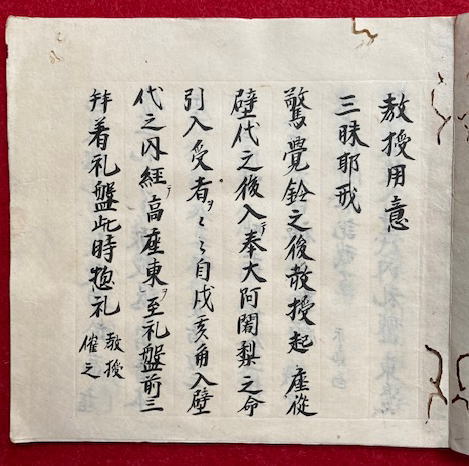 教授用意
三昧耶戒
驚覺鈴之後教授起座從
壁代之後入テ奉大阿闍梨之命
引入受者ヲ〻〻自戌亥角入壁
代之内経テ高座東ヲ至礼盤前三
拜着礼盤此時惣礼教授
催之